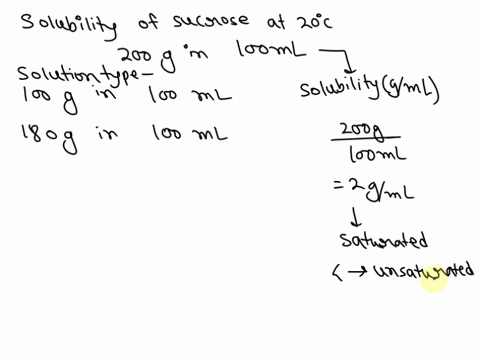 Solubility of sucrose at 20°C
200 g in 100mL
Solution type-
100 g in 100 mL
180g in 100 mL
Solubility (g/mL)
200g
100mL
= 2 g/mL
↓
Saturated
< → unsaturated